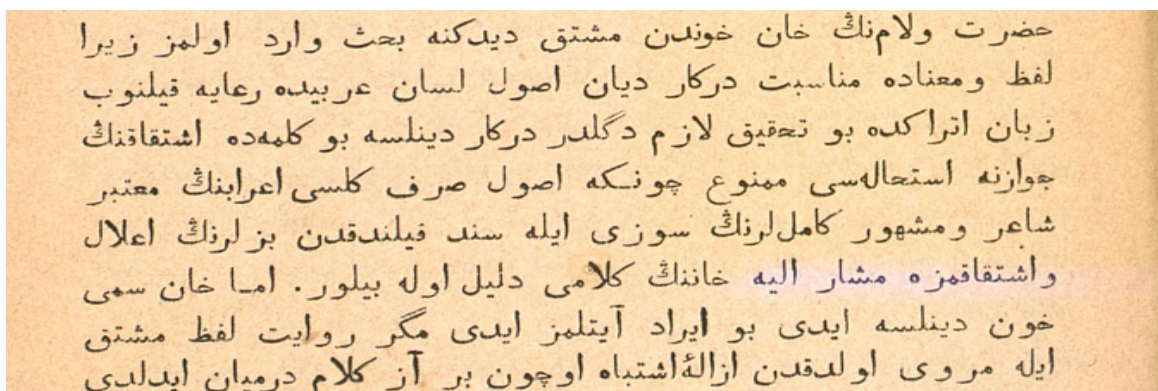 حضرت ولامنڭ خان خوندن مشتق ديدكنه بحث وارد اولمز زيرا
لفظ ومعناده مناسبت دركار ديان اصول لسان عربيده رعايه قيلنوب
زبان اتراكده بو تحقيق لازم دگلدر دركار دينلسه بو كلمه‌ده اشتقاقنڭ
جوازنه استحاله‌سى ممنوع چونكه اصول صرف كلسى اعرابنڭ معتبر
شاعر ومشهور كامل‌لرنڭ سوزى ايله سند قيلندقدن بزلرنڭ اعلال
واشتقاقمزه مشار اليه خاننڭ كلامى دليل اوله بيلور. اما خان سمى
خون دينلسه ايدى بو ايراد آيتلمز ايدى مگر روايت لفظ مشتق
ايله مروى اولدقدن ازالۀ اشتباه اوچون بر آز كلام درميان ايدلدى